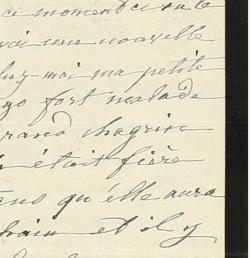 ci moment ci on le
voici une nouvelle
chez-moi ma petite
fort malade
grand chagrin
était fière
tens qu'elle aura
et il y